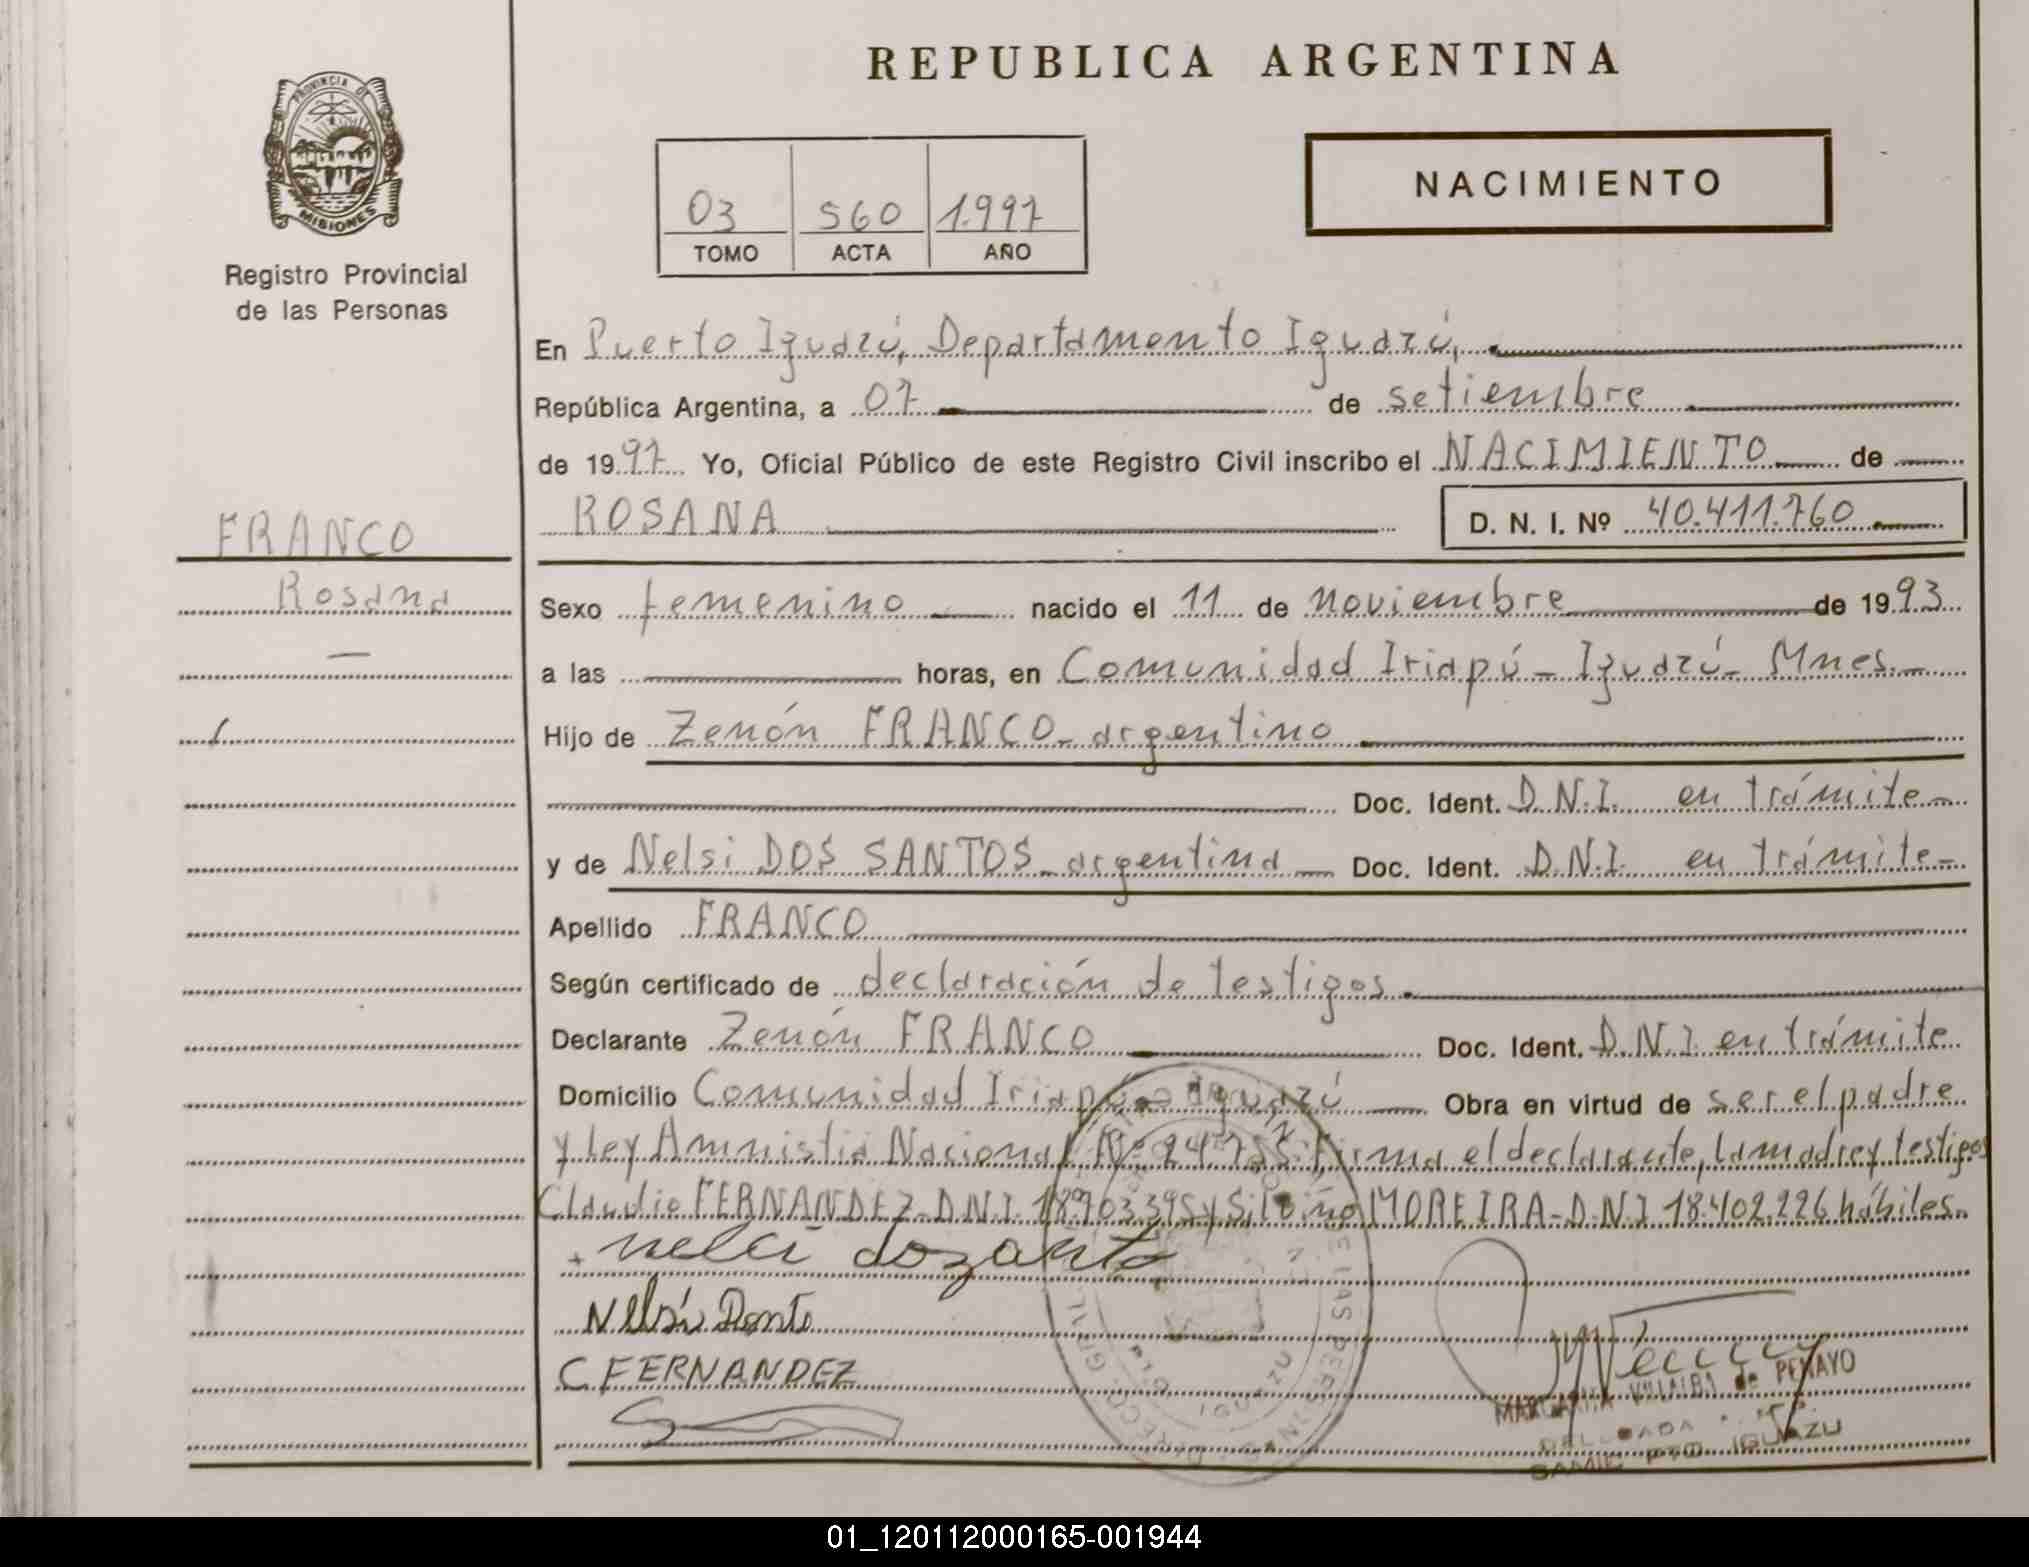 REPUBLICA ARGENTINA
PROVINCIA DE
MISIONES
Registro Provincial
de las Personas
03 560 1.997
TOMO ACTA AÑO
NACIMIENTO
En Puerto Iguazú, Departamento Iguazú,
República Argentina, a 07 de setiembre
de 1997 Yo, Oficial Público de este Registro Civil inscribo el NACIMIENTO de
ROSANA D. N. I. Nº 40.411.760
FRANCO
Rosana
Sexo femenino nacido el 11 de noviembre de 1993
a las horas, en Comunidad Iriapú - Iguazú - Mnes.
Hijo de Zenón FRANCO - argentino
Doc. Ident. D.N.I. en trámite -
y de Nelsi DOS SANTOS - argentina Doc. Ident. D.N.I. en trámite -
Apellido FRANCO
Según certificado de declaración de testigos.
Declarante Zenón FRANCO Doc. Ident. D.N.I en trámite
Domicilio Comunidad Iriapú - Iguazú Obra en virtud de ser el padre
y Ley Amnistia Nacional Nº 24.755. Firma el declarante, la madre y testigos
Claudio FERNANDEZ - D.N.I. 18.903.395 y Silvino MOREIRA - D.N.I 18.402.226 hábiles.
nelci dozanto
C FERNANDEZ
MARGARITA VILLALBA de PENAYO
DELEGADA
SAMIC PTO IGUAZU
01_120112000165-001944